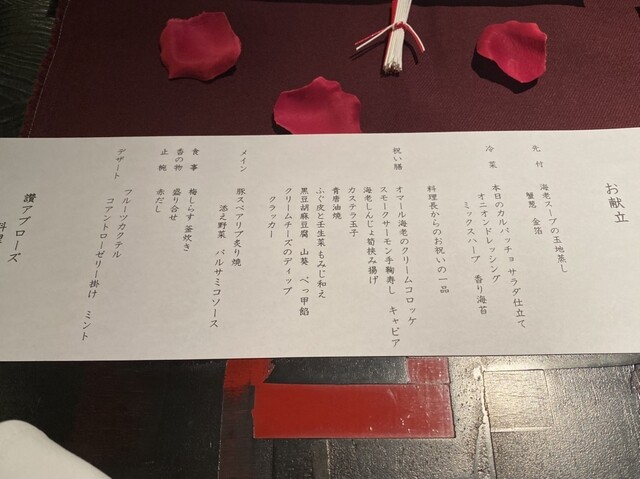 お献立
先付
海老スープの玉地蒸し
蟹葱 金箔
冷菜
本日のカルパッチョ サラダ仕立て
オニオンドレッシング
ミックスハーブ 香り海苔
料理長からのお祝いの一品
祝い膳
オマール海老のクリームコロッケ
スモークサーモン手鞠寿し キャビア
海老しんじょ筍挟み揚げ
カステラ玉子
青唐油焼
ふぐ皮と壬生菜もみじ和え
黒豆胡麻豆腐 山葵 べっ甲餡
クリームチーズのディップ
クラッカー
メイン
豚スペアリブ炙り焼
添え野菜 バルサミコソース
食事
梅しらす釜炊き
香の物
盛り合せ
止椀
赤だし
デザート
フルーツカクテル
コアントローゼリー掛け ミント
讃アプローズ
料理